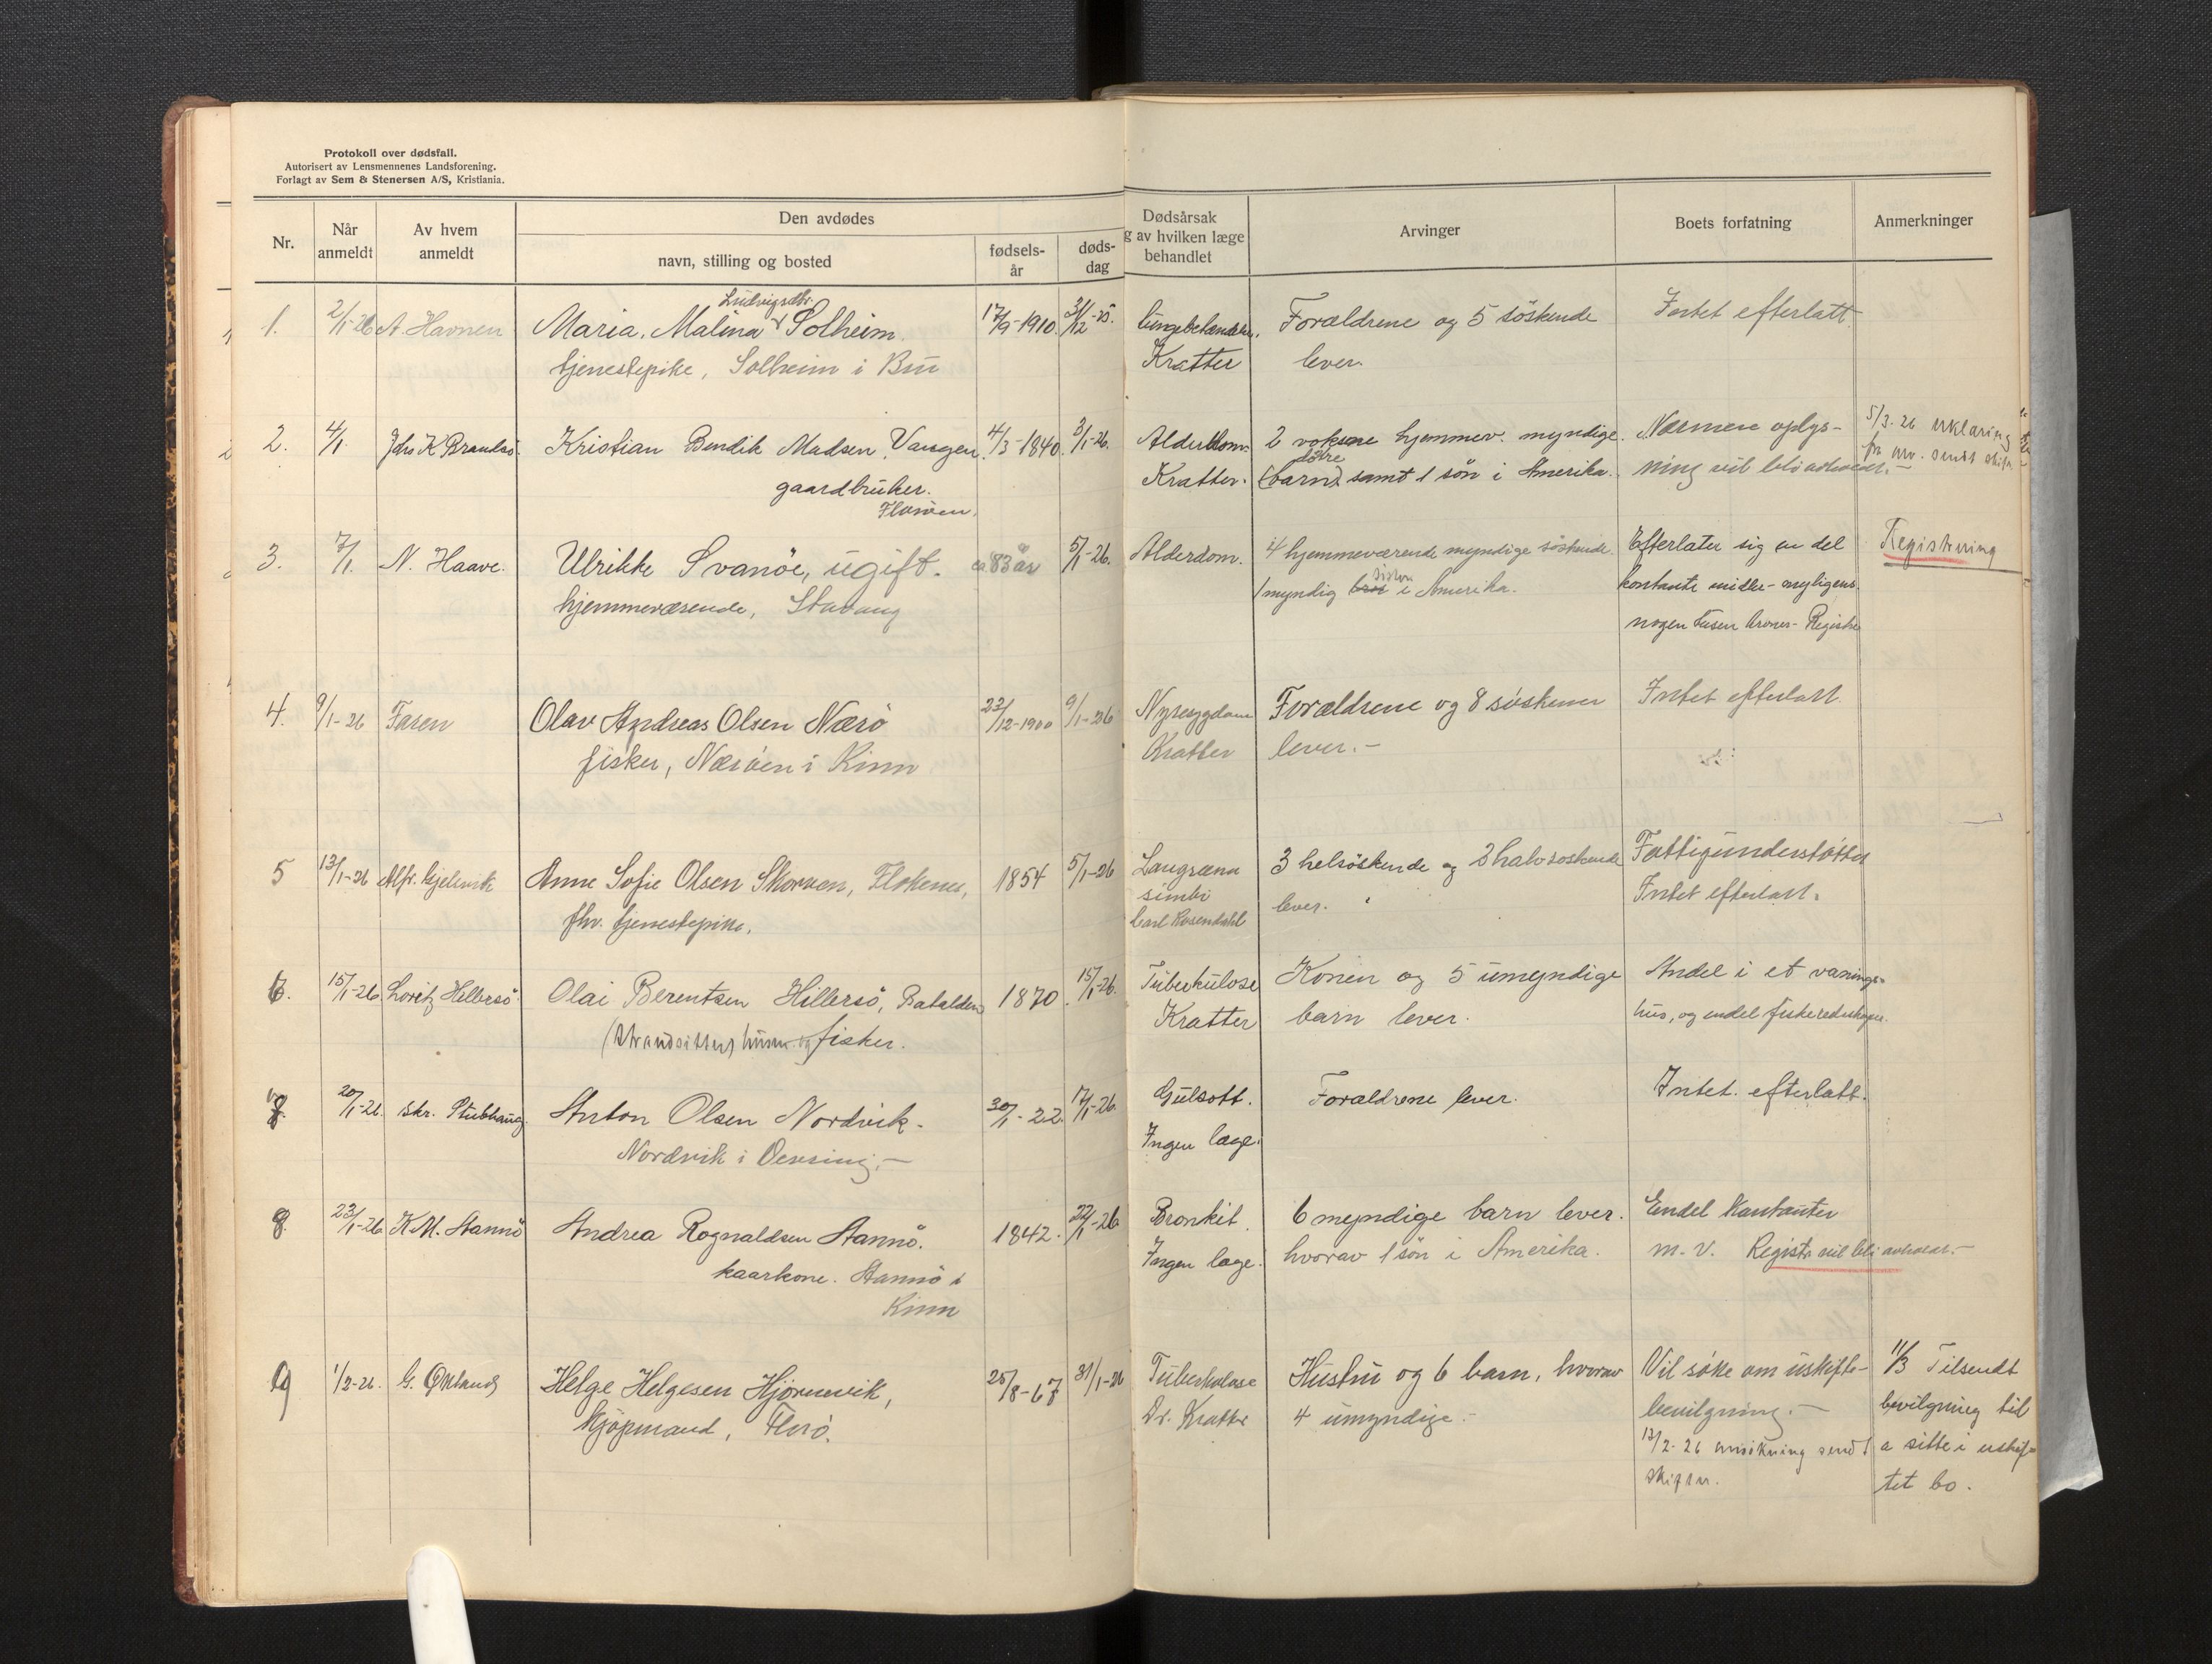 Protokoll over dødsfall.
Autorisert av Lensmennenes Landsforening.
Forlagt av Sem & Stenersen A/S, Kristiania.
Nr.
Når anmeldt
Av hvem anmeldt
Den avdødes
navn, stilling og bosted
fødsels-år
døds-dag
Dødsårsak
g av hvilken læge
behandlet
Arvinger
Boets forfatning
Anmerkninger
1. 2/1-26 A. Havnen
Ludvigsdtr.
Maria. Malina Solheim. 17/9-1910. 31/12-25.
tjenestepike, Solheim i Bru
Kratter
Forældrene og 5 söskende
lever.
Intet efterlatt
2. 4/1. Johs K Brandsö
Kristian Bendik Madsen, Vangen. 4/3-1840. 3/1-26.
gaardbruker.
Florøen.
Alderdom.
Kratter.
2 voksne hjemmev. myndige
døtre
(barn) samt 1 sön i Amerika.
Nærmere oplys-
ning vil bli avholdt.
5/3. 26 erklæring
fra arv. sendt skift
3. 7/1. N. Haave.
Ulrikke Svanöe, ugift. ca 83 år 5/1-26.
hjemmeværende, Stavang
Alderdom.
4 hjemmeværende myndige söskende.
1 myndig bror i Amerika.
søster
Efterlater sig en del
kontante midler
nogen tusen kroner- Registr
Registrering
4. 9/1-26 Faren
Olav Andreas Olsen Nærö 22/12-1900 9/1-26
fisker, Næröen i Kinn
Nyresygdom
Kratter
Forældrene og 8 söskener
lever.-
Intet efterlatt.
5 13/1-26 Alfr. Gjelsvik
Anne Sofie Olsen Skorven, Flokenes, 1854 5/1-26
fhv. tjenestepike.
Carl Rosendahl
3 helsöskende og 2 halvsöskende
lever.
Fattigunderstöttet
Intet efterlatt.
6. 15/1-26. Loritz Hellersö.
Olai Berentsen Hillersö, Batalden 1870. 15/1-26.
(Strandsitter) husm. og fisker.
Tuberkulose
Kratter
Konen og 5 umyndige
barn lever.
Andel i et vanings-
hus, og endel fiskeredskaper.
7. 20/1-26. Skr. Stubhaug
Anton Olsen Nordvik. 30/1-22. 17/1-26
Nordvik i
Gulsott.
Ingen læge.
Forældrene lever.
Intet. efterlatt.
8. 23/1-26 K M. Stannö
Andrea Rognaldsen Stannö. 1842. 22/1-26
kaarkone. Stannö i
Kinn
Bronkit.
Ingen læge.
6 myndige barn lever.
hvorav 1 sön i Amerika.
Endel Kontanter
m. v. Registr. vil bli avholdt.-
9 1/2-26. G. Öxland
Helge Helgesen Hjörnevik, 25/8-67 31/1-26
Kjöpmand, Florö.
Tuberkulose
Dr. Kratter
Hustru og 6 barn, hvorav
4 umyndige.-
Vil söke om uskifte-
bevilgning.-
13/2-26 ansökning sendt
skiftn.
11/3 Tilsendt
bevilgning til
a sitte i uskif-
tet bo.